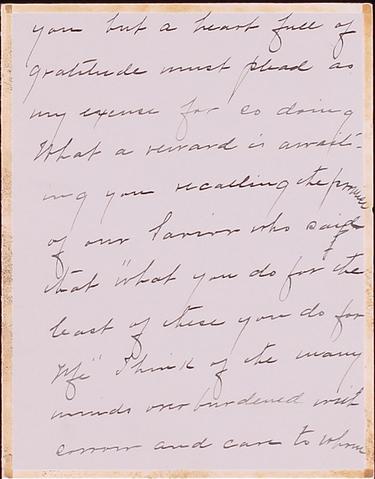 you but a heart full of
gratitude must plead as
my excuse for so doing
What a reward is await-
ing you recalling the promise
of our Savior who said
that "what you do for the
least of these you do for
Me" Think of the many
minds overburdened with
sorrow and care to whom